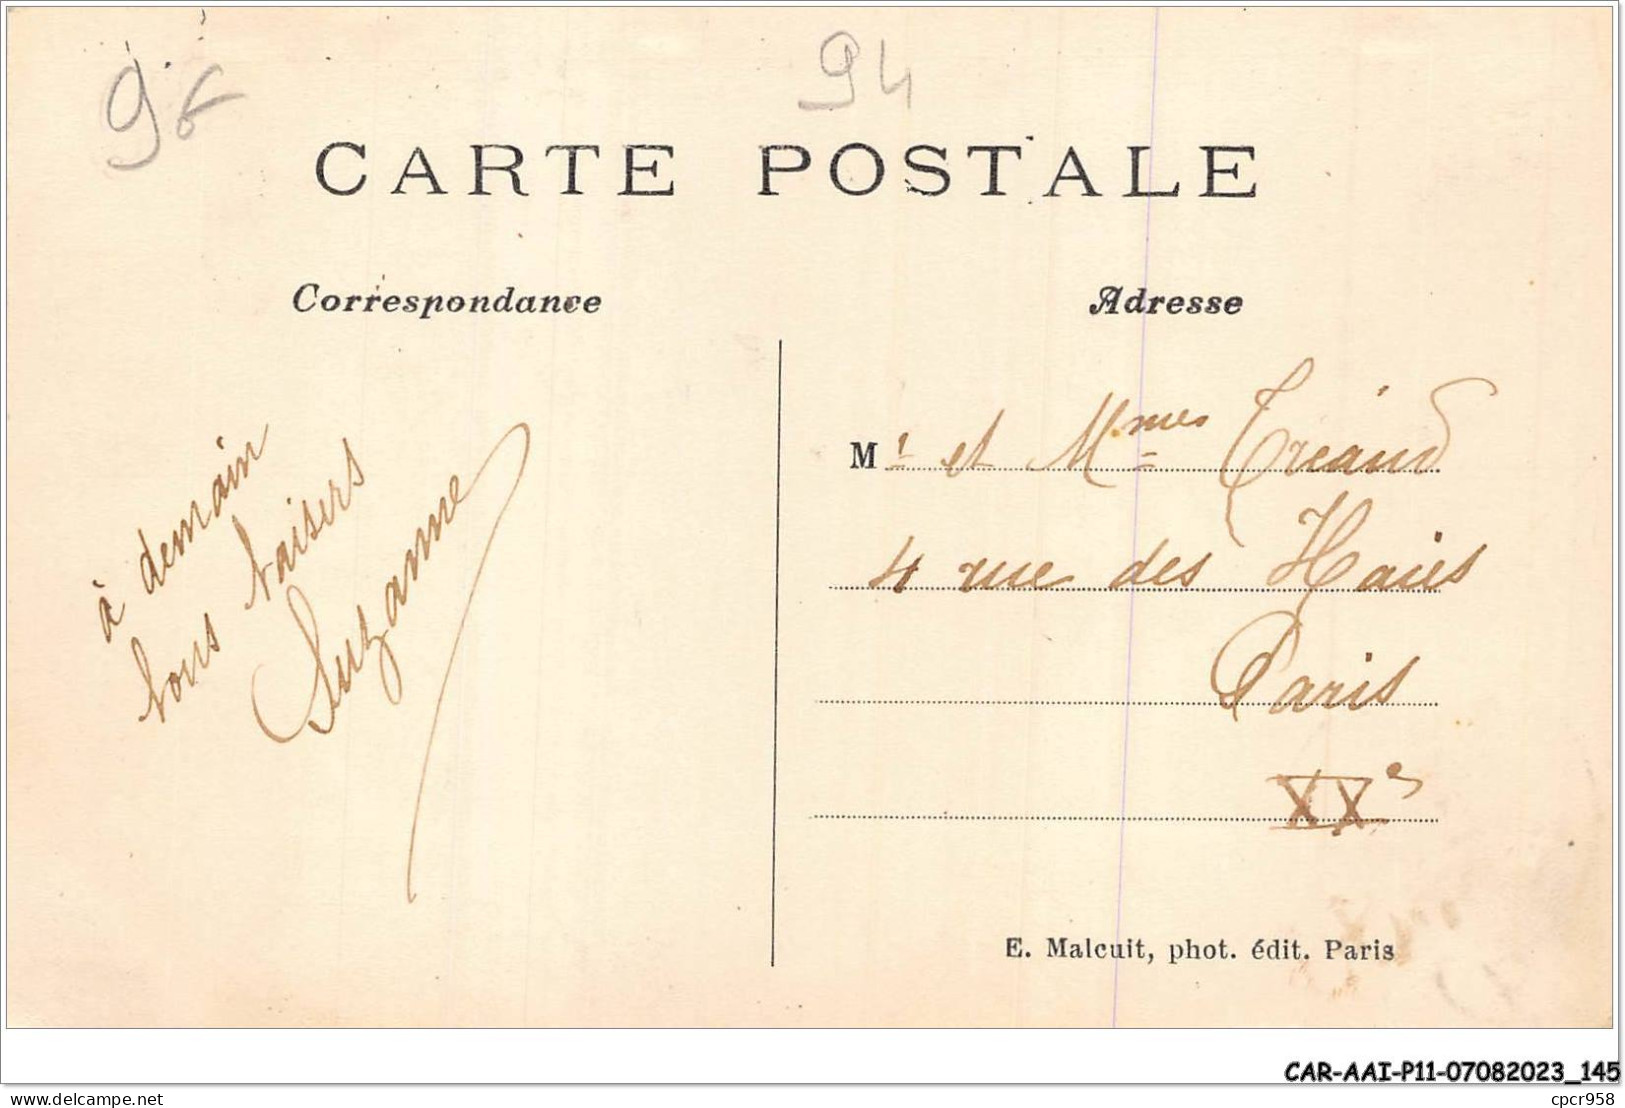 94
CARTE POSTALE
Correspondance
Adresse
à demain
bons baisers
Suzanne
Mr et Mmes Tréaud
4 rue des Haies
Paris
XXe
E. Malcuit, phot. édit. Paris
CAR-AAI-P11-07082023_145
www.delcampe.net
cpcr958